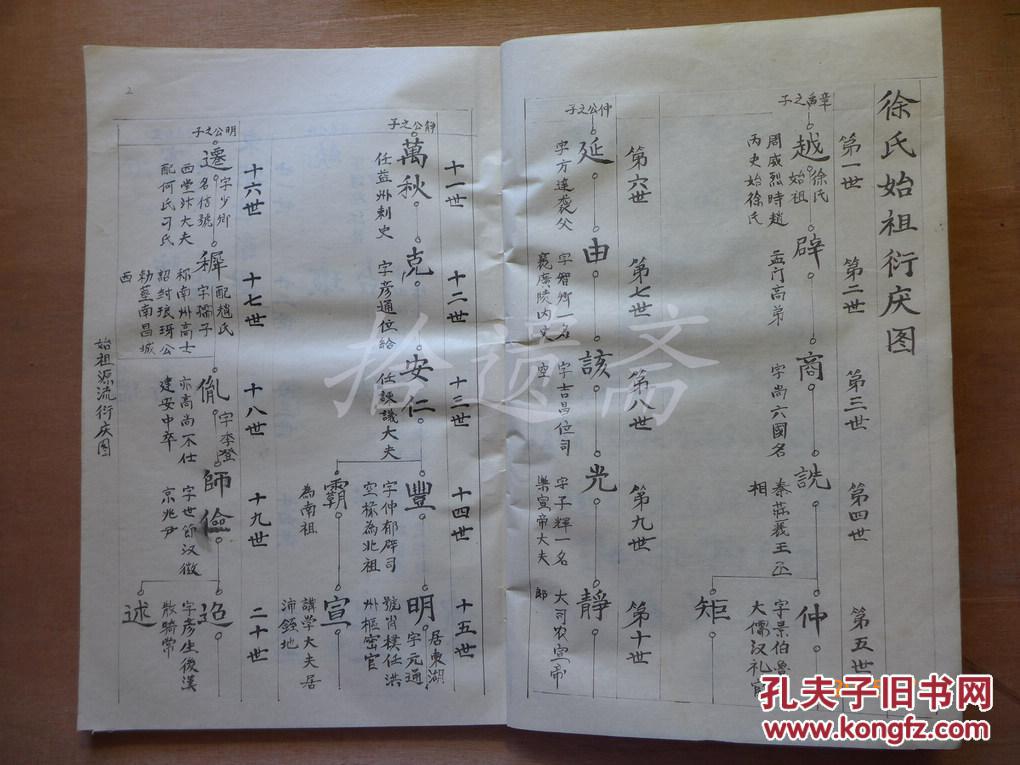 徐氏始祖衍庆图
第一世
章禹之子
越
徐氏
始祖
周威烈時趙
丙史始徐氏
第二世
辟
孟门高弟
第三世
商
字尚六國名
第四世
詵
秦莊襄王丞
相
第五世
仲
字景伯魯
大儒汉礼官
矩
第六世
仲公之子
延
字方達袭父
第七世
由
字智卿一名
襄廣陵内史
第八世
該
字吉昌位司
空
第九世
光
字子輝一名
樂宣帝大夫
第十世
靜
大司农宣帝
郎
十一世
靜公之子
萬秋
任益州刺史
十二世
克
字彦通位給
十三世
安仁
任諫議大夫
十四世
豐
字仲郁辟司
空椽為北祖
霸
為南祖
十五世
明
居東湖
字元通
號肖樸任洪
州樞密官
宣
講学大夫居
沛領地
十六世
明公之子
遷
字少卿
名仿號
西堂汴大夫
配何氏刁氏
十七世
穉
配趙氏
字孺子
称南州高士
詔封琅琊公
勅墓南昌城
西
十八世
胤
字季登
亦高尚不仕
建安中卒
十九世
師儉
字世節汉徵
京兆尹
二十世
迢
字彦生後漢
散騎常
述
始祖源流衍庆图
2
拾遗斋
孔夫子旧书网
www.kongfz.com